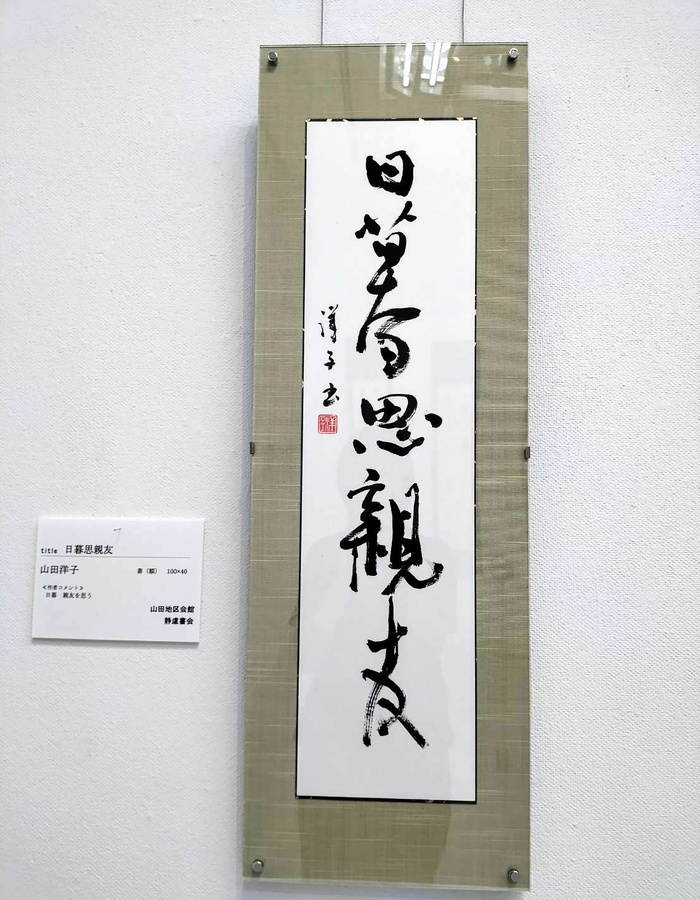 日暮思親友
洋子書
title 日暮思親友
山田洋子 書（額） 100×40
≪作者コメント≫
日暮 親友を思う
山田地区会館
静盧書会